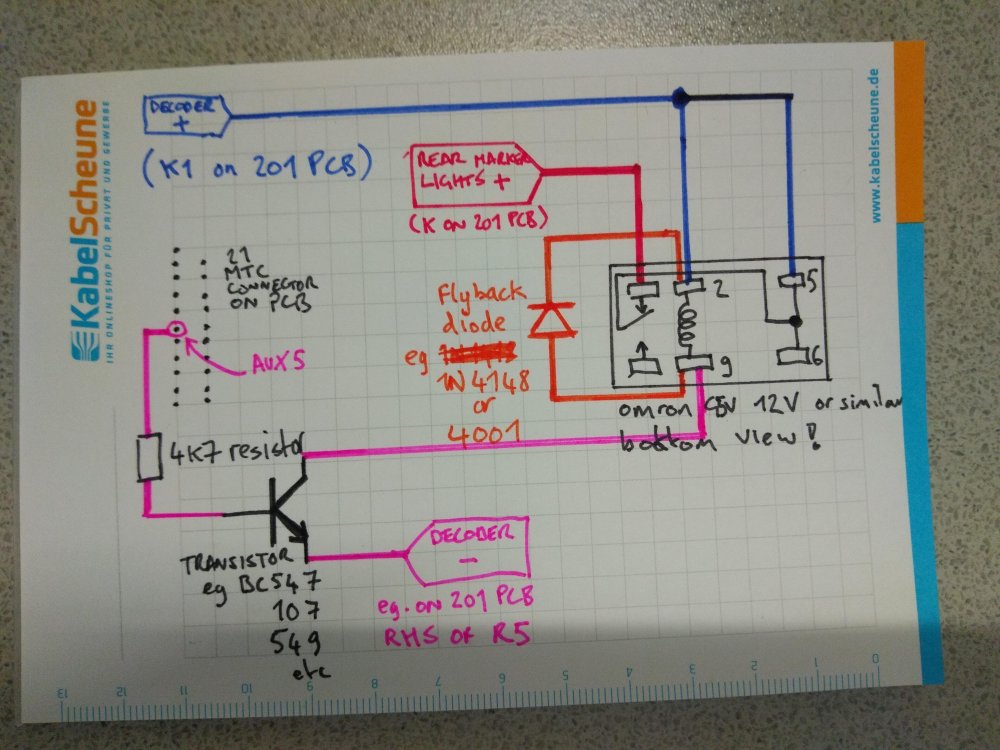 KabelScheune
IHR ONLINESHOP FÜR PRIVAT UND GEWERBE
www.kabelscheune.de
DECODER
+
(K1 on 201 PCB)
REAR MARKER
LIGHTS +
(K ON 201 PCB)
21
MTC
CONNECTOR
ON PCB
AUX5
Flyback
diode
eg
1N4148
or
4001
2
15
9
16
omron G5V 12V or similar
bottom view!
4K7 resistor
TRANSISTOR
eg BC547
107
549
etc
DECODER
-
eg. ON 201 PCB
RHS OF R5
13 12 11 10 9 8 7 6 5 4 3 2 1 0